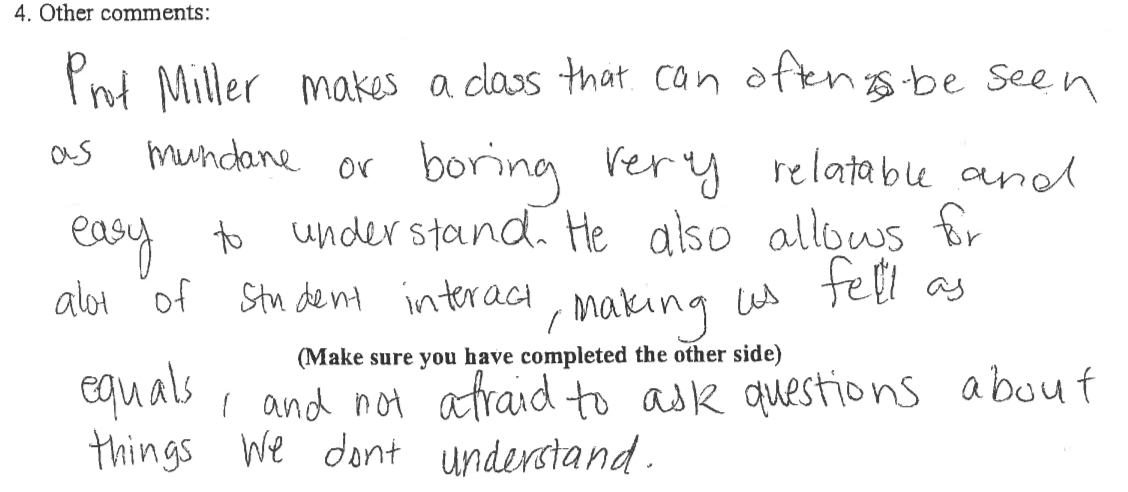 4. Other comments:
Prof Miller makes a class that can often be seen
as mundane or boring very relatable and
easy to understand. He also allows for
alot of student interact, making us fell as
(Make sure you have completed the other side)
equals, and not afraid to ask questions about
things we dont understand.